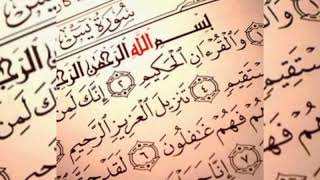 سُورَةُ يسٓ
بِسْمِ ٱللَّهِ ٱلرَّحْمَٰنِ ٱلرَّحِيمِ
وَٱلْقُرْءَانِ ٱلْحَكِيمِ ٢ إِنَّكَ لَمِنَ
مُّسْتَقِيمٍ ٤ تَنزِيلَ ٱلْعَزِيزِ ٱلرَّحِيمِ
فَهُمْ غَٰفِلُونَ ٦ لَقَدْ
٧ إِنَّا